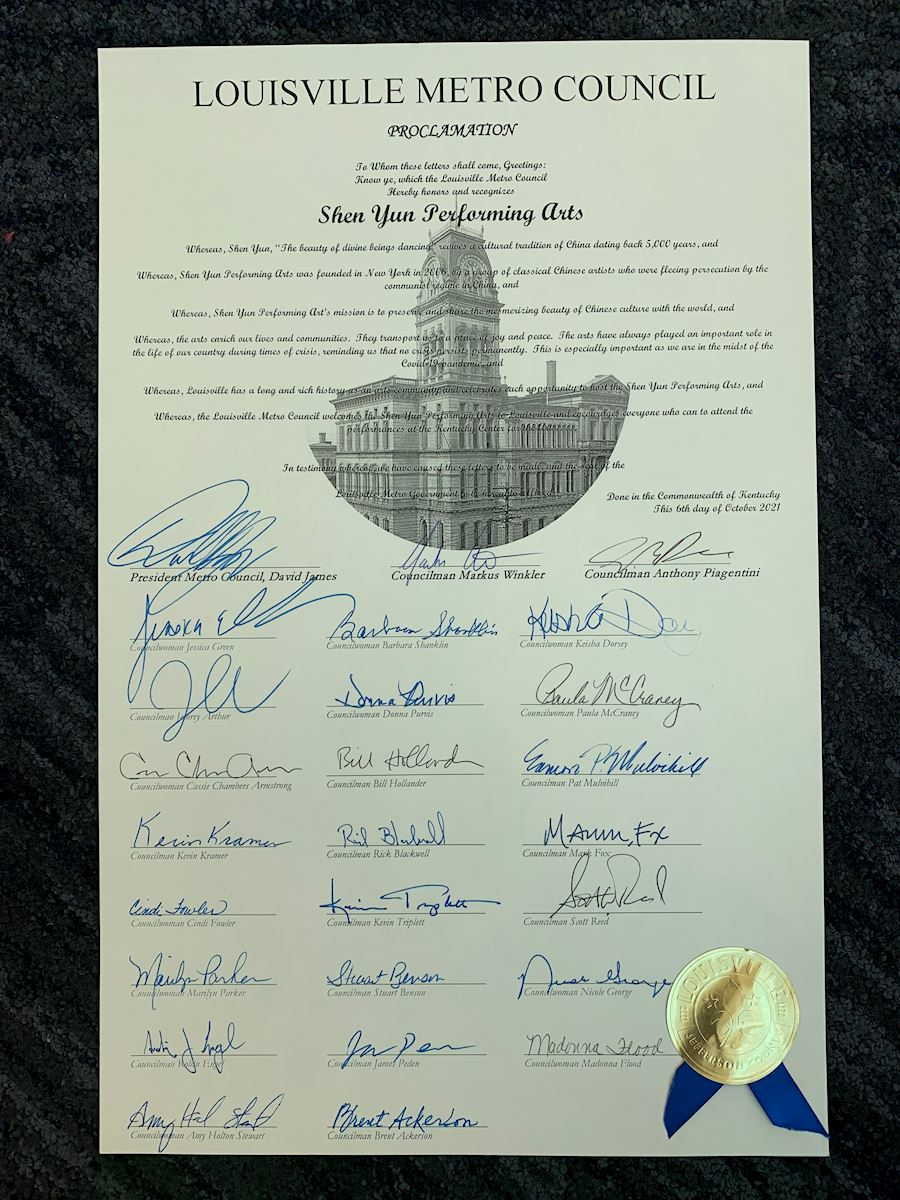 LOUISVILLE METRO COUNCIL
PROCLAMATION
To Whom these letters shall come, Greetings:
Know ye, which the Louisville Metro Council
Hereby honors and recognizes
Shen Yun Performing Arts
Whereas, Shen Yun, "The beauty of divine beings dancing" revives a cultural tradition of China dating back 5,000 years, and
Whereas, Shen Yun Performing Arts was founded in New York in 2006, by a group of classical Chinese artists who were fleeing persecution by the
communist regime in China, and
Whereas, Shen Yun Performing Art's mission is to preserve and share the mesmerizing beauty of Chinese culture with the world, and
Whereas, the arts enrich our lives and communities. They transport us to a place of joy and peace. The arts have always played an important role in
the life of our country during times of crisis, reminding us that no crisis persists permanently. This is especially important as we are in the midst of the
Covid-19 pandemic, and
Whereas, Louisville has a long and rich history as an arts community and celebrates each opportunity to host the Shen Yun Performing Arts, and
Whereas, the Louisville Metro Council welcomes the Shen Yun Performing Arts to Louisville and encourages everyone who can to attend the
performances at the Kentucky Center for
In testimony whereof, we have caused these letters to be made, and the seal of the
Louisville Metro Government to be hereunto
Done in the Commonwealth of Kentucky
This 6th day of October 2021
President Metro Council, David James
Councilman Markus Winkler
Councilman Anthony Piagentini
Barbara Shanklin
Councilwoman Jessica Green
Councilwoman Barbara Shanklin
Councilwoman Keisha Dorsey
Donna Purvis
Paula McCraney
Councilman Jecorey Arthur
Councilwoman Donna Purvis
Councilwoman Paula McCraney
Bill Hollander
Councilwoman Cassie Chambers Armstrong
Councilman Bill Hollander
Councilman Pat Mulvihill
Kevin Kramer
Councilman Kevin Kramer
Councilman Rick Blackwell
Councilman Mark Fox
Cindi Fowler
Kevin Triplett
Scott Reed
Councilwoman Cindi Fowler
Councilman Kevin Triplett
Councilman Scott Reed
Marilyn Parker
Stuart Benson
Councilwoman Marilyn Parker
Councilman Stuart Benson
Councilwoman Nicole George
Madonna Flood
Councilman Robin Engel
Councilman James Peden
Councilwoman Madonna Flood
Brent Ackerson
Councilwoman Amy Holton Stewart
Councilman Brent Ackerson
LOUISVILLE
JEFFERSON COUNTY